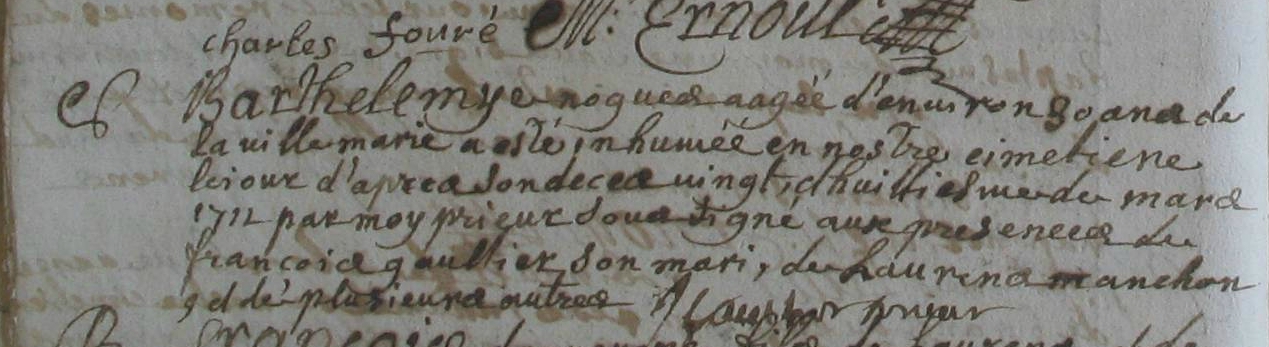 charles fouré M. Ernoul
S Barthelemye nogues aagéé d'environ 30 ans de
la ville marie a esté inhuméé en nostre cimetiere
le jour d'apres son deces vingt & huittiesme de mars
1712 par moy prieur soussigné aux presences de
françois gaultier son mari, de Laurens manchon
& de plusieurs autres prieur
françois de